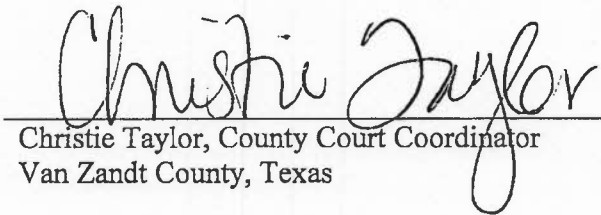 Christie Taylor
Christie Taylor, County Court Coordinator
Van Zandt County, Texas